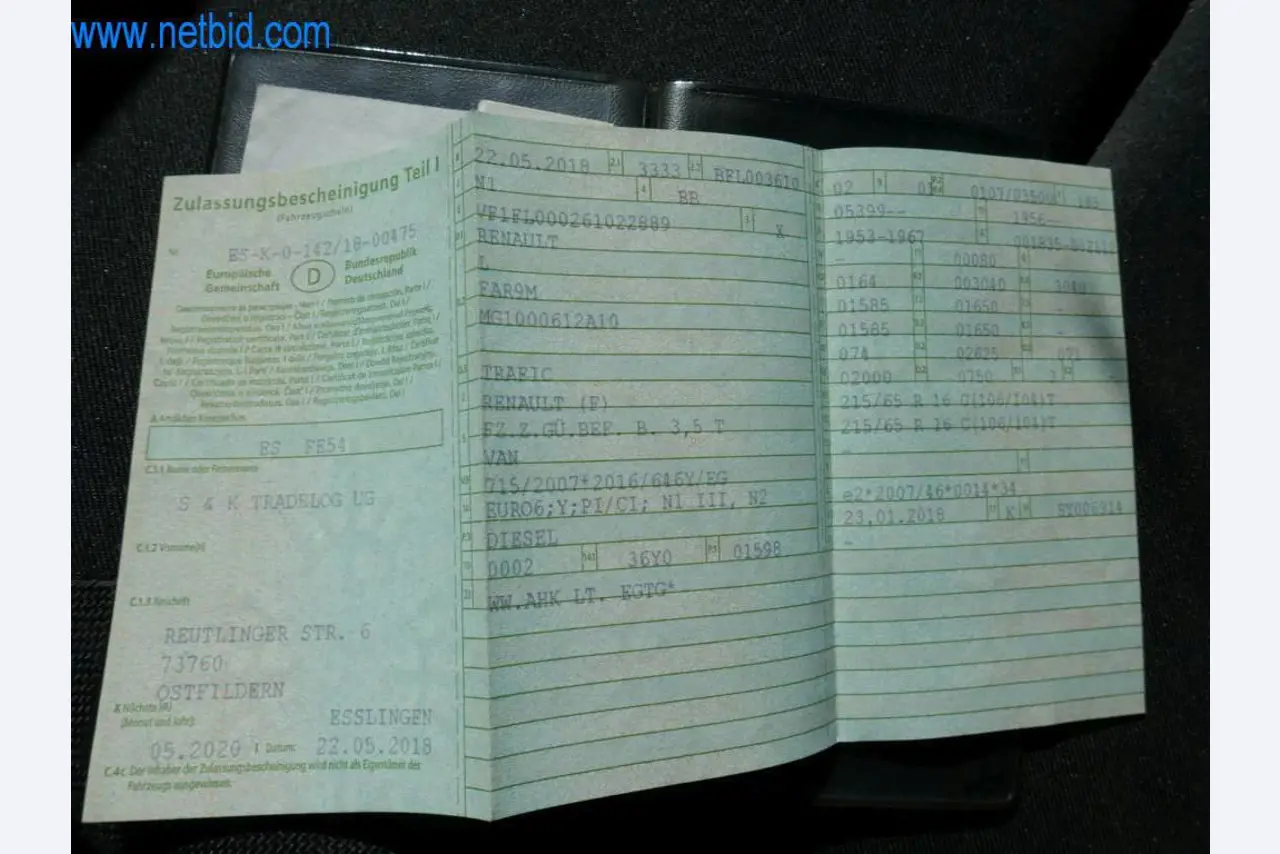 www.netbid.com
Zulassungsbescheinigung Teil I
(Fahrzeugschein)
Nr.
ES-K-0-142/18-00475
Europäische
Gemeinschaft
D
Bundesrepublik
Deutschland
A Amtliches Kennzeichen
ES FE54
C.1.1 Name oder Firmenname
S & K TRADELOG UG
C.1.2 Vorname(n)
C.1.3 Anschrift
REUTLINGER STR. 6
73760
OSTFILDERN
Nächste HU
(Monat und Jahr):
ESSLINGEN
05.2020
Datum:
22.05.2018
C.4c Der Inhaber der Zulassungsbescheinigung wird nicht als Eigentümer des
Fahrzeugs ausgewiesen.
22.05.2018 2.1 3333 2.2 BFL003610
N1 4 BB
VF1FL000261022889 3 X
RENAULT
L
FAR9M
MG1000612A10
TRAFIC
RENAULT (F)
FZ.Z.GÜ.BEF. B. 3,5 T
VAN
715/2007*2016/646Y/EG
EURO6;Y;PI/CI; N1 III, N2
DIESEL
0002 14.1 36Y0 P.1 01598
WW.AHK LT. EGTG*
02 9
05399-- 1956--
1953-1967
- 00080
0164 003040 3040
01585 01650 -
01585 01650 -
074 02625
02000 0750 3 -
215/65 R 16 C(106/104)T
215/65 R 16 C(106/104)T
-
e2*2007/46*0014*34
23.01.2018 K
-